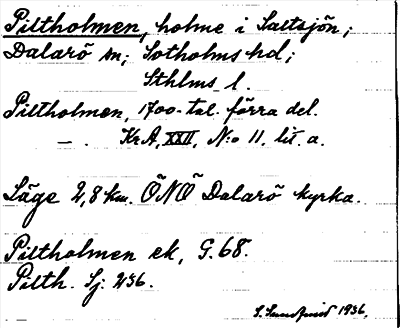 Piltholmen, holme i Saltsjön;
Dalarö sn; Sotholms hd;
Sthlms l.
Piltholmen, 1700-tal. förra del.
— . Kr A, XXII, N:o 11, lit. a.
Läge 2,8 km. ÖNÖ Dalarö kyrka.
Piltholmen ek, G. 68.
Pilth. Sj. 236.
S. 1936.